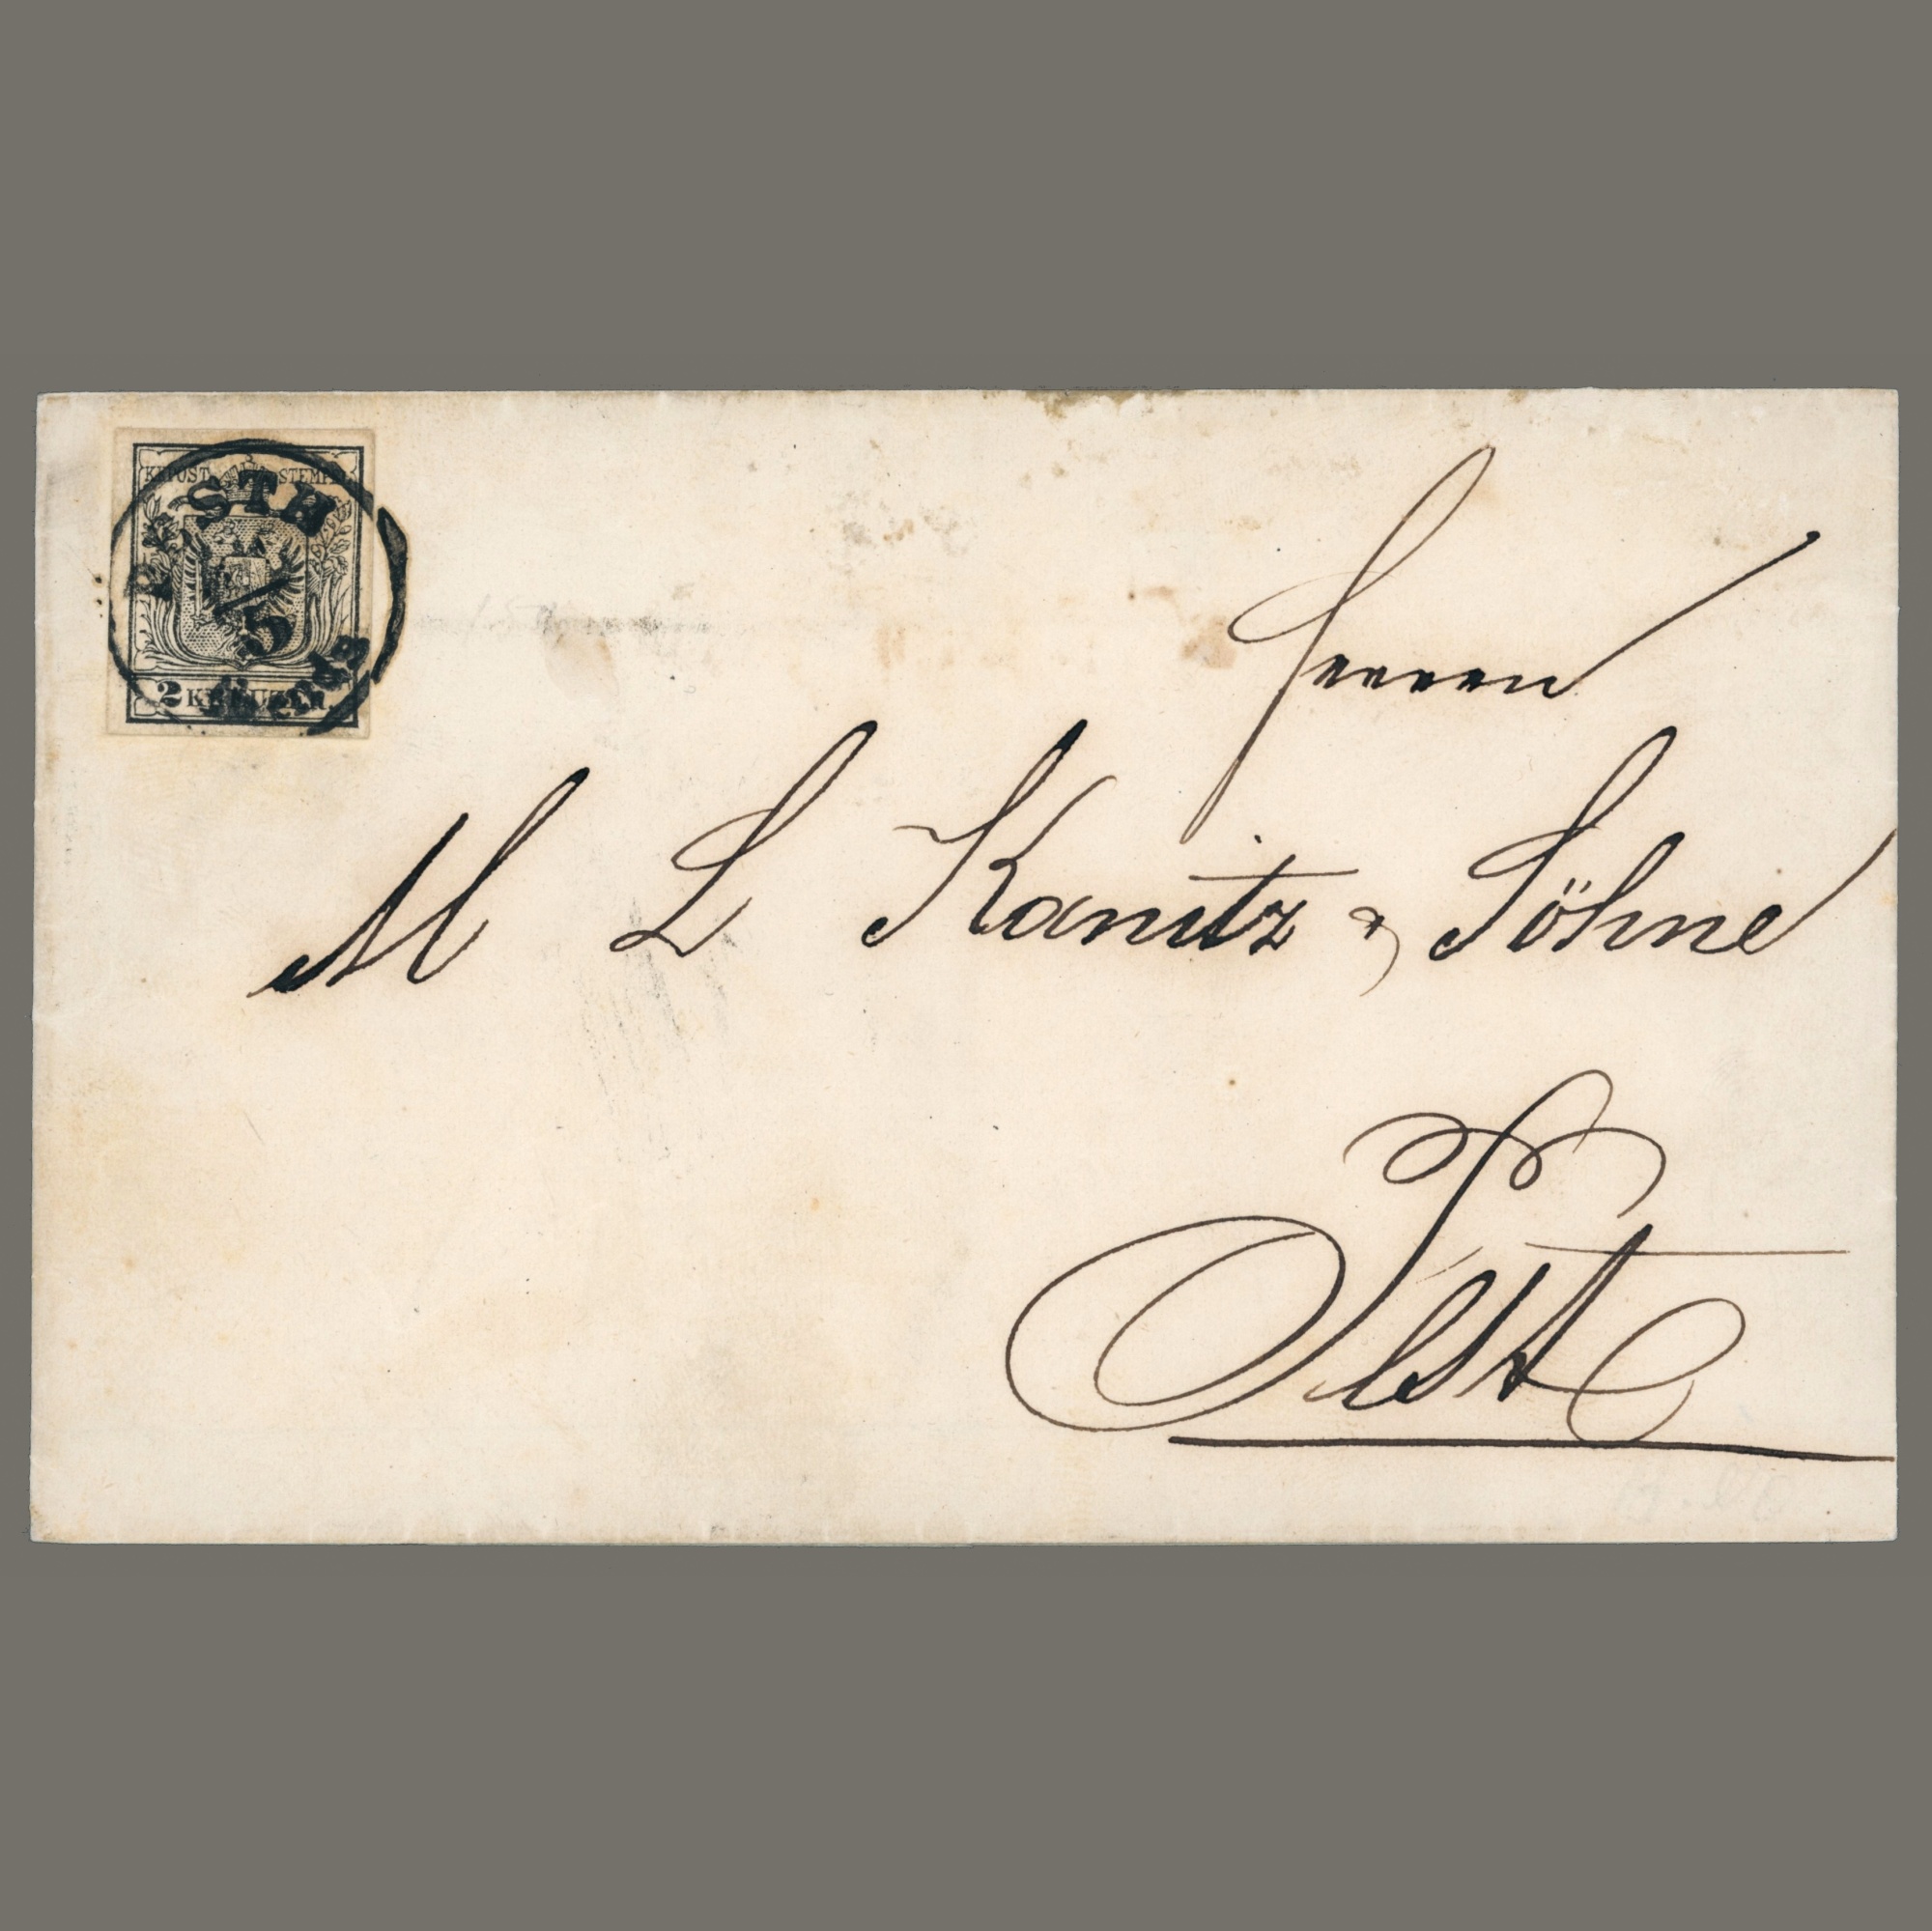 KK POST STEMPEL
2 KREUZER
Herrn
M L Kanitz & Söhne
Pest